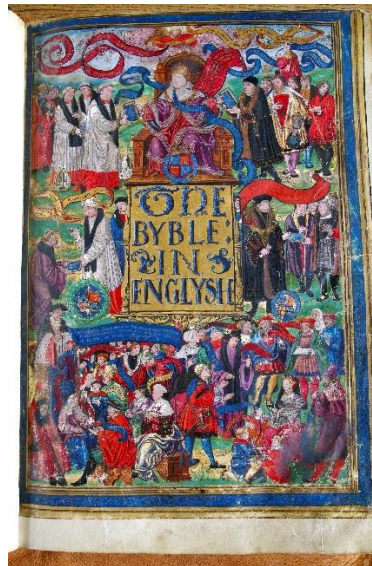 THE
BYBLE:
IN
ENGLYSH